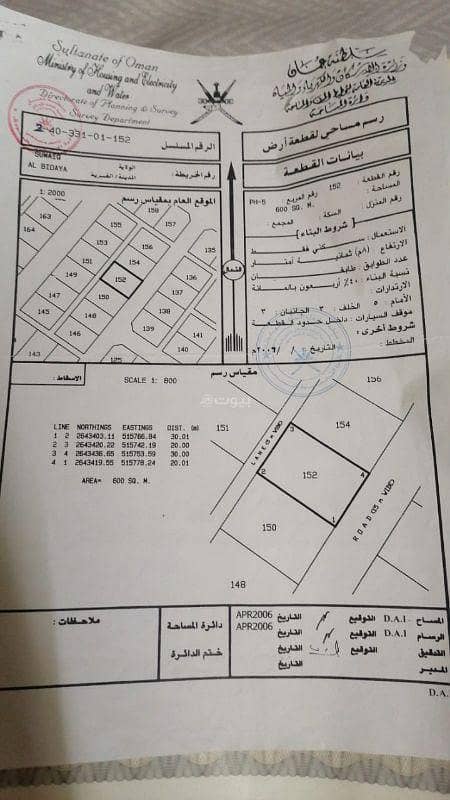 Sultanate of Oman
Ministry of Housing and Electricity
and Water
Directorate of Planning & Survey
Survey Department
سلطنة عمان
دائرة المساحة
2 40-331-01-152
الرقم المسلسل
رسم مساحي لقطعة أرض
SUWAIQ
AL BIDAYA
الولاية
المدينة / القرية
رقم الخريطة:
بيانات القطعة
رقم القطعة : 152
رقم المربع : PH-5
المساحة : 600 SQ. M.
رقم المنزل : السكة : المجمع :
[ شروط البناء ]
الاستعمال : سكني فقط
الارتفاع (٨م) ثمانية أمتار
عدد الطوابق : طابقان
نسبة البناء : ٤٠٪ أربعون بالمائة
الارتدادات :
الأمام : ٥ الخلف : ٣ الجانبان : ٣
موقف السيارات : داخل حدود القطعة
شروط أخرى :
المخطط : التاريخ / / ٢٠٠٦م
1: 2000
الموقع العام بمقياس رسم
163
164
155
158
157
156
154
149
152
151
147
150
148
146
145
143
125
الشمال
الاسقاط :
SCALE 1: 800
مقياس رسم
LINE NORTHINGS EASTINGS DIST. (m)
1 2 2643403.11 515766.84 30.01
2 3 2643420.22 515742.19 20.00
3 4 2643436.65 515753.59 30.00
4 1 2643419.55 515778.24 20.01
AREA= 600 SQ. M.
بيوت
156
151
154
152
150
148
1
2
3
4
ملاحظات :
دائرة المساحة
ختم الدائرة
المساح : D.A.I التوقيع التاريخ APR2006
الرسام D.A.I التوقيع التاريخ APR2006
التدقيق التوقيع التاريخ
المدير التاريخ
D.A.